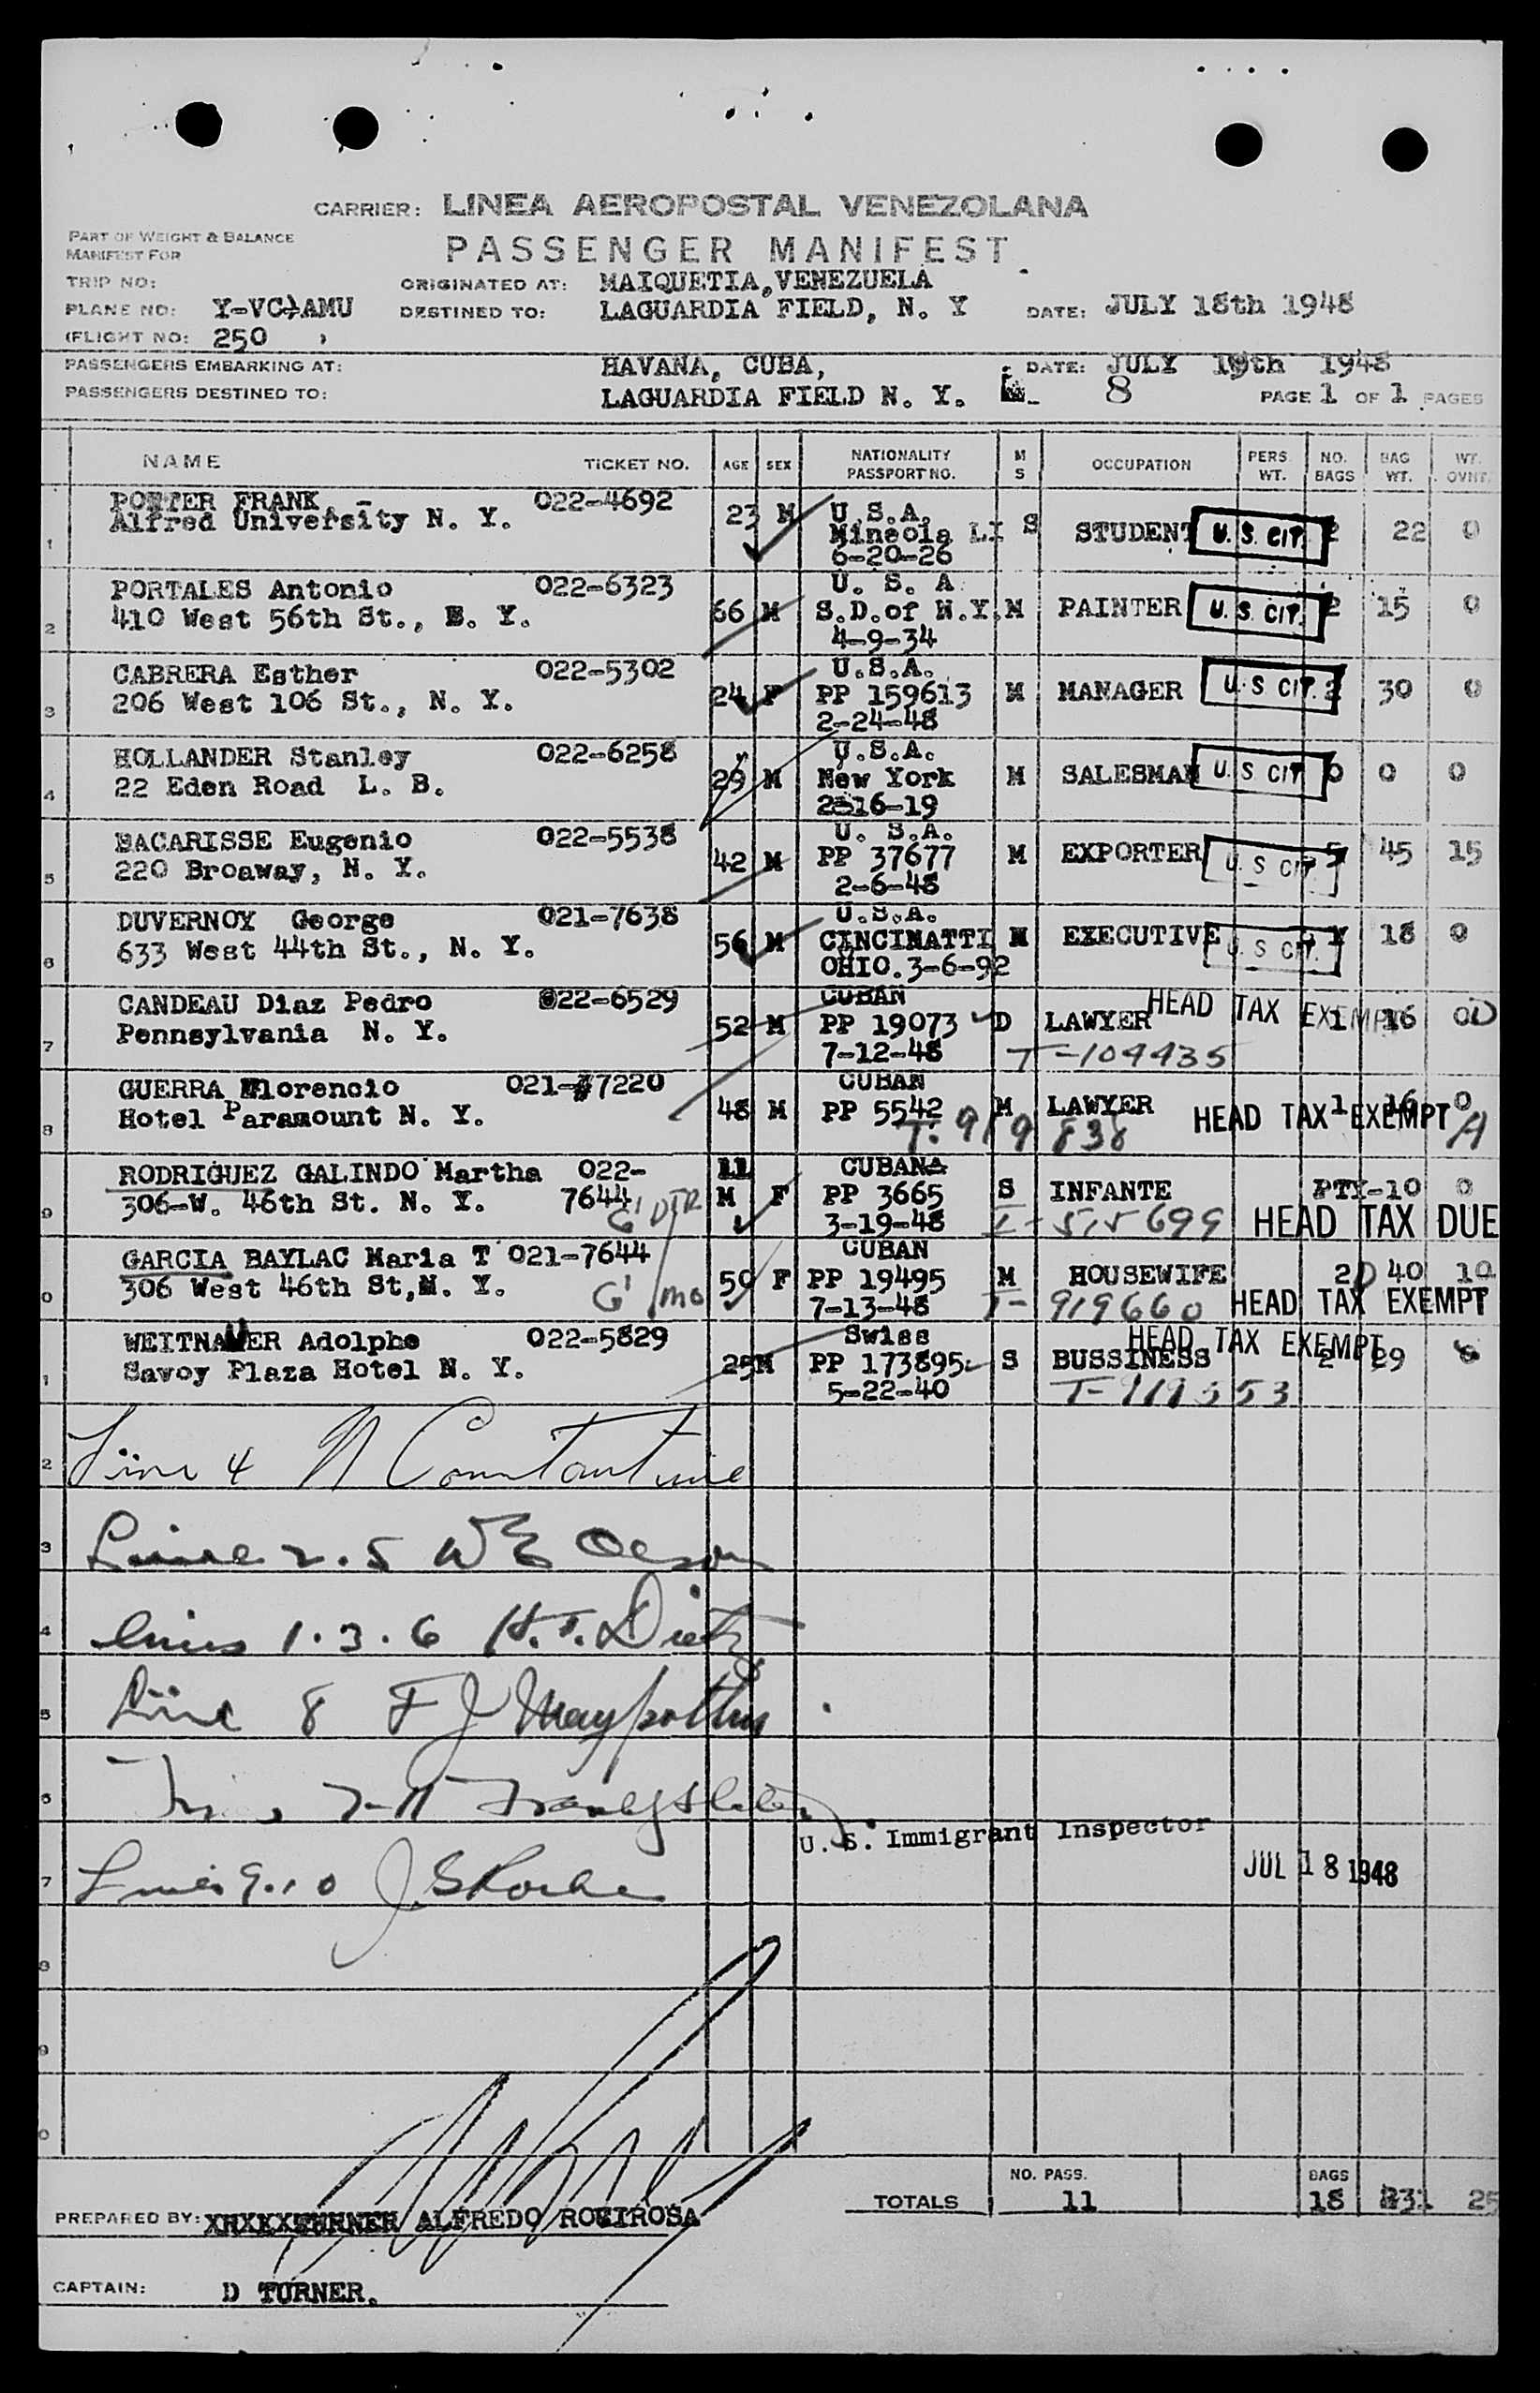 CARRIER: LINEA AEROPOSTAL VENEZOLANA
PART OF WEIGHT & BALANCE
MANIFEST FOR
PASSENGER MANIFEST
TRIP NO: ORIGINATED AT: MAIQUETIA, VENEZUELA
PLANE NO: Y-VC-AMU DESTINED TO: LAGUARDIA FIELD, N. Y DATE: JULY 18th 1948
(FLIGHT NO: 250 )
PASSENGERS EMBARKING AT: HAVANA, CUBA, DATE: JULY 18th 1948
PASSENGERS DESTINED TO: LAGUARDIA FIELD N. Y. 8 PAGE 1 OF 1 PAGES
NAME TICKET NO. AGE SEX NATIONALITY PASSPORT NO. M S OCCUPATION PERS. WT. NO. BAGS BAG WT. WT. OVHT.
1 FRANK. - 022-4692 23 M U.S.A. S STUDENT U.S. CIT. 2 22 0
Alfred University N. Y. Mineola LI
6-20-26
2 PORTALES Antonio 022-6323 66 M U. S. A M PAINTER U.S. CIT. 2 15 0
410 West 56th St., N. Y. S.D.of N.Y.
4-9-34
3 CABRERA Esther 022-5302 24 F U.S.A. M MANAGER U.S CIT. 2 30 0
206 West 106 St., N. Y. PP 159613
2-24-48
4 HOLLANDER Stanley 022-6258 29 M U.S.A. M SALESMAN U.S CIT 0 0 0
22 Eden Road L. B. New York
2-16-19
5 MACARISSE Eugenio 022-5538 42 M U. S.A. M EXPORTER U.S CIT. 5 45 15
220 Broaway, N. Y. PP 37677
2-6-48
6 DUVERNOY George 021-7638 56 M U.S.A. M EXECUTIVE U.S CIT. 18 0
633 West 44th St., N. Y. CINCINATTI
OHIO. 3-6-92
7 CANDEAU Diaz Pedro 022-6529 52 M CUBAN D LAWYER HEAD TAX EXEMPT 1 16 0D
Pennsylvania N. Y. PP 19073
7-12-48 T-104435
8 GUERRA Florencio 021-7220 48 M CUBAN M LAWYER HEAD TAX EXEMPT 1 16 0
Hotel Paramount N. Y. PP 5542 A
T. 919838
9 RODRIGUEZ GALINDO Martha 022- 11 CUBANA
306-W. 46th St. N. Y. 7644 M F PP 3665 S INFANTE PTY-10 0
3-19-48 T-515699 HEAD TAX DUE
0 GARCIA BAYLAC Maria T 021-7644 50 F CUBAN M HOUSEWIFE 2 40 10
306 West 46th St, N. Y. PP 19495
7-13-48 T-919660 HEAD TAX EXEMPT
1 WEITNAUER Adolphe 022-5829 25 M Swiss S BUSSINESS HEAD TAX EXEMPT 2 29
Savoy Plaza Hotel N. Y. PP 173895
5-22-40 T-919553
2 Line 4 N Constantine
3 Line 2.5 W E Olson
4 lines 1.3.6 H.T. Dietz
5 Line 8 F J
6 7-11
U. S. Immigrant Inspector
7 Lines 9.10 J. S Roche JUL 18 1948
8
9
0
NO. PASS. BAGS
TOTALS 11 18 231 25
PREPARED BY: ALFREDO ROVIROSA
CAPTAIN: D TURNER.